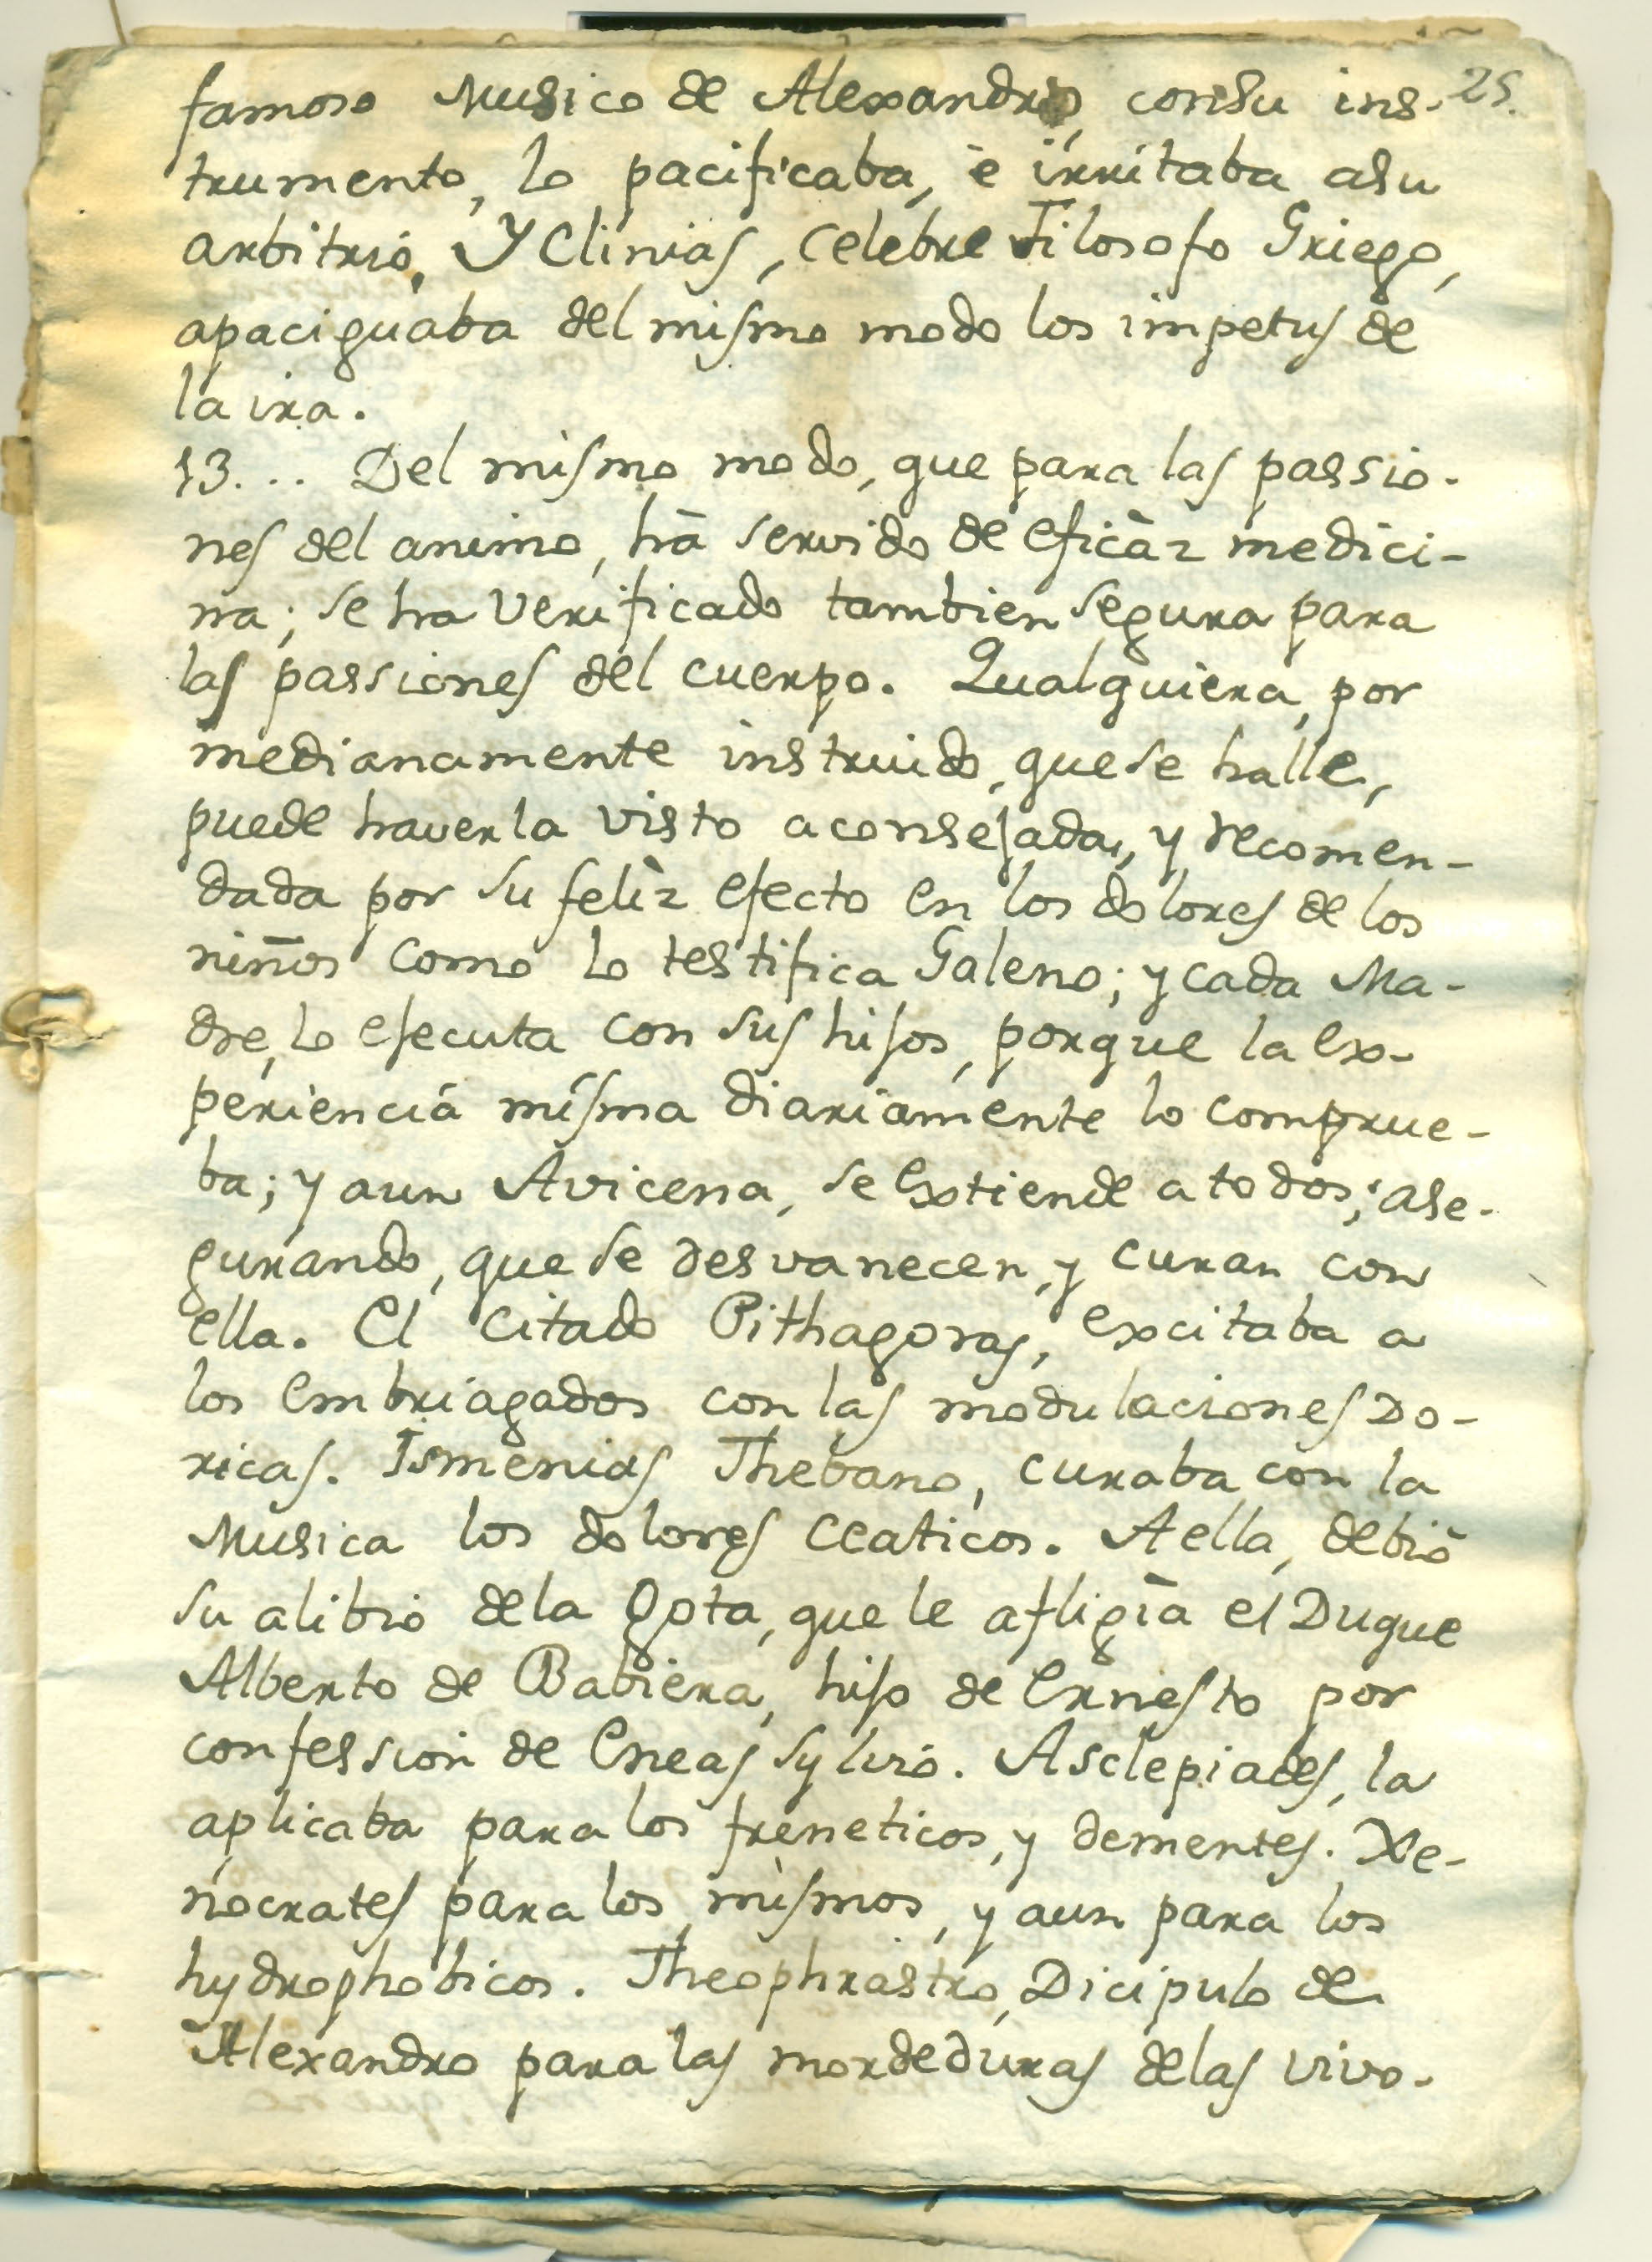 famoso Musico de Alexandro, consu ins- 25.
trumento, lo pacificaba, è irritaba asu
arbitrio, Y Clinias, celebre Filosofo Griego,
apaciguaba del mismo modo los impetus de
la ira.
13... Del mismo modo, que para las passio-
nes del animo, hà servido de eficàz medici-
na; se ha verificado tambien segura para
las passiones del cuerpo. Qualquiera, por
medianamente instruido, quese halle,
puede haverla visto aconsejada, y recomen-
dada por su felìz efecto en los dolores de los
niños como lo testifica Galeno; y cada Ma-
dre, lo ejecuta con sus hijos, porque la ex-
periencia misma diariamente lo comprue-
ba; y aun Avicena, se extiende a todos; ase-
gurando, que se desvanecen, y curan con
ella. El citado Pithagoras, excitaba a
los embriagados con las modulaciones Do-
ricas. Ismenias Thebano, curaba con la
Musica los dolores ceaticos. A ella, debiò
su alibio dela Gota, que le afligìa el Duque
Alberto de Babiera, hijo de Ernesto por
confession de Eneas Sylvio. Asclepiades, la
aplicaba para los freneticos, y dementes. Xe-
nocrates para los mismos, y aun para los
hydrophobicos. Theophrastro, Dicipulo de
Alexandro para las mordeduras delas vivo-